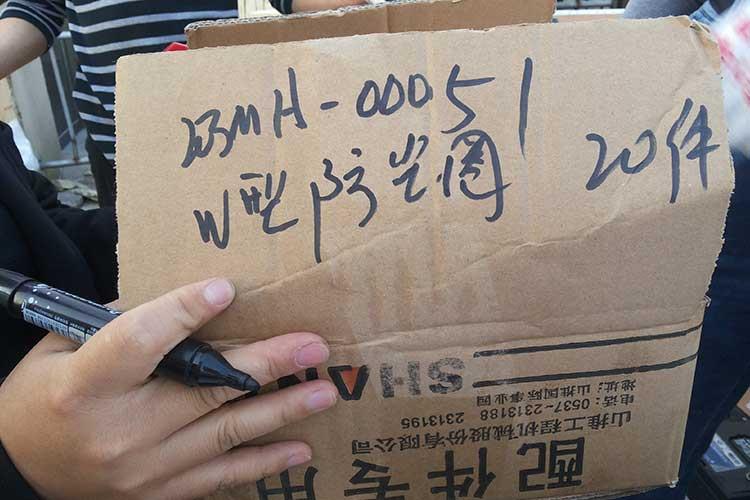 W型防尘圈 20件
配件专用
山推工程机械股份有限公司
电话：0537-2313188 2313195
地址：山推国际事业园